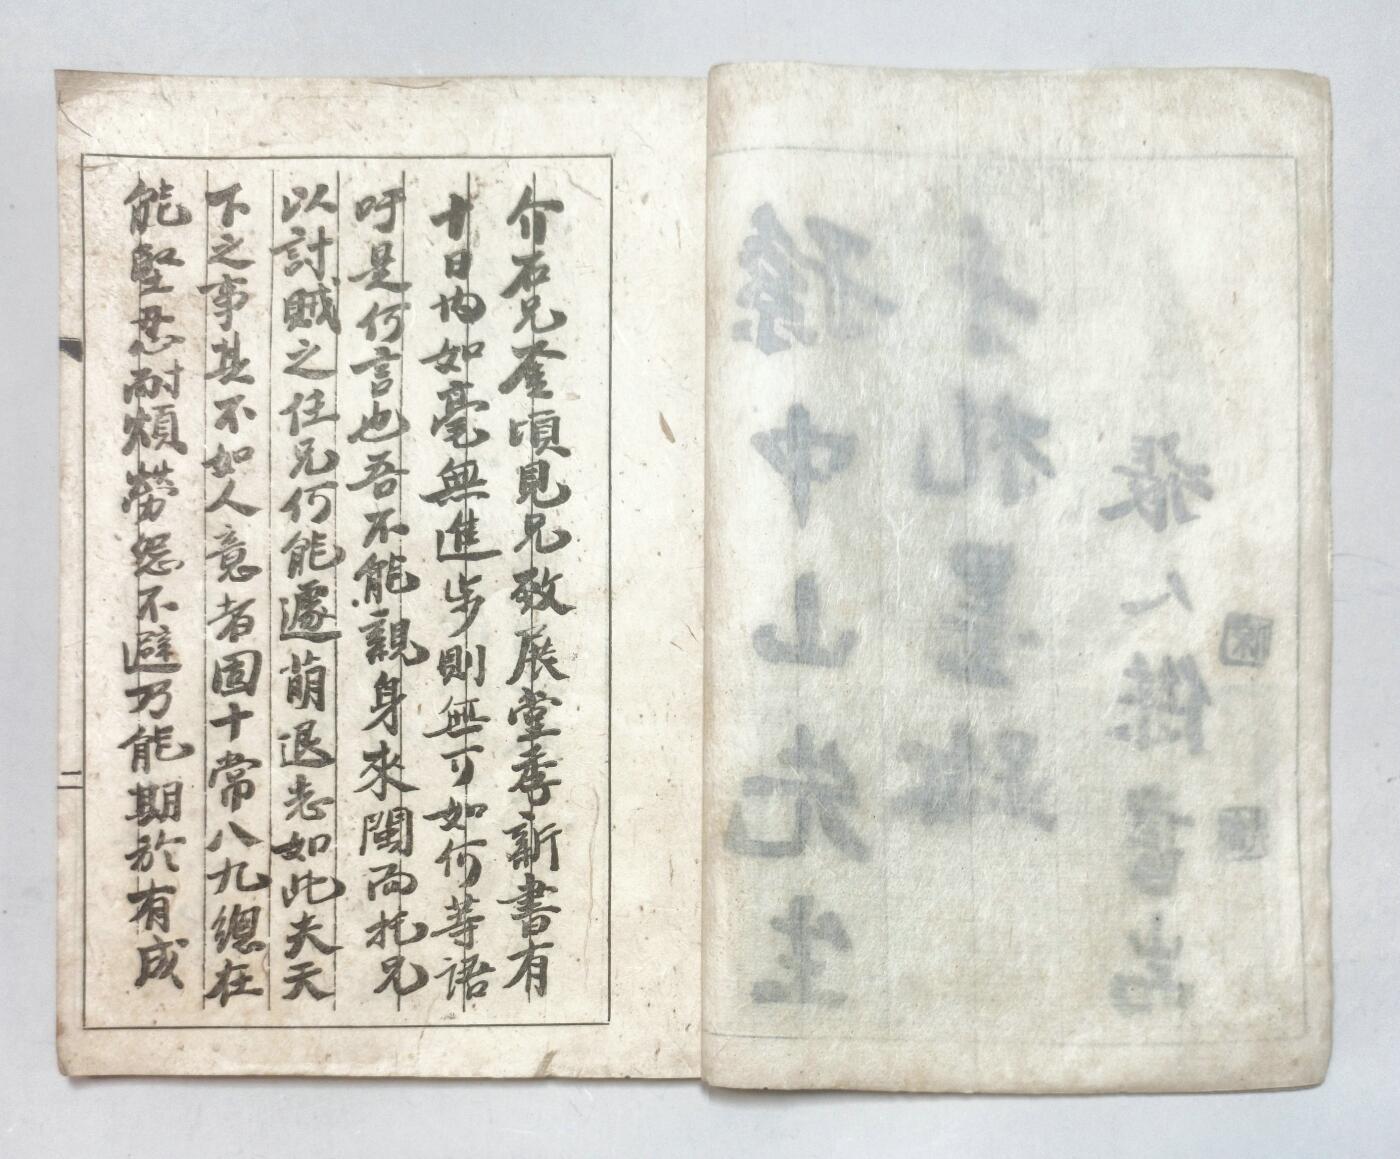 孫中山先生
手札墨蹟
張人傑書耑
介石兄鑒頃見兄致展堂季新書有
十日內如毫無進步則無可如何等語
吁是何言也吾不能親身來閩而托兄
以討賊之任兄何能遽萌退志如此夫天
下之事其不如人意者固十常八九總在
能堅忍耐煩勞怨不避乃能期於有成
二